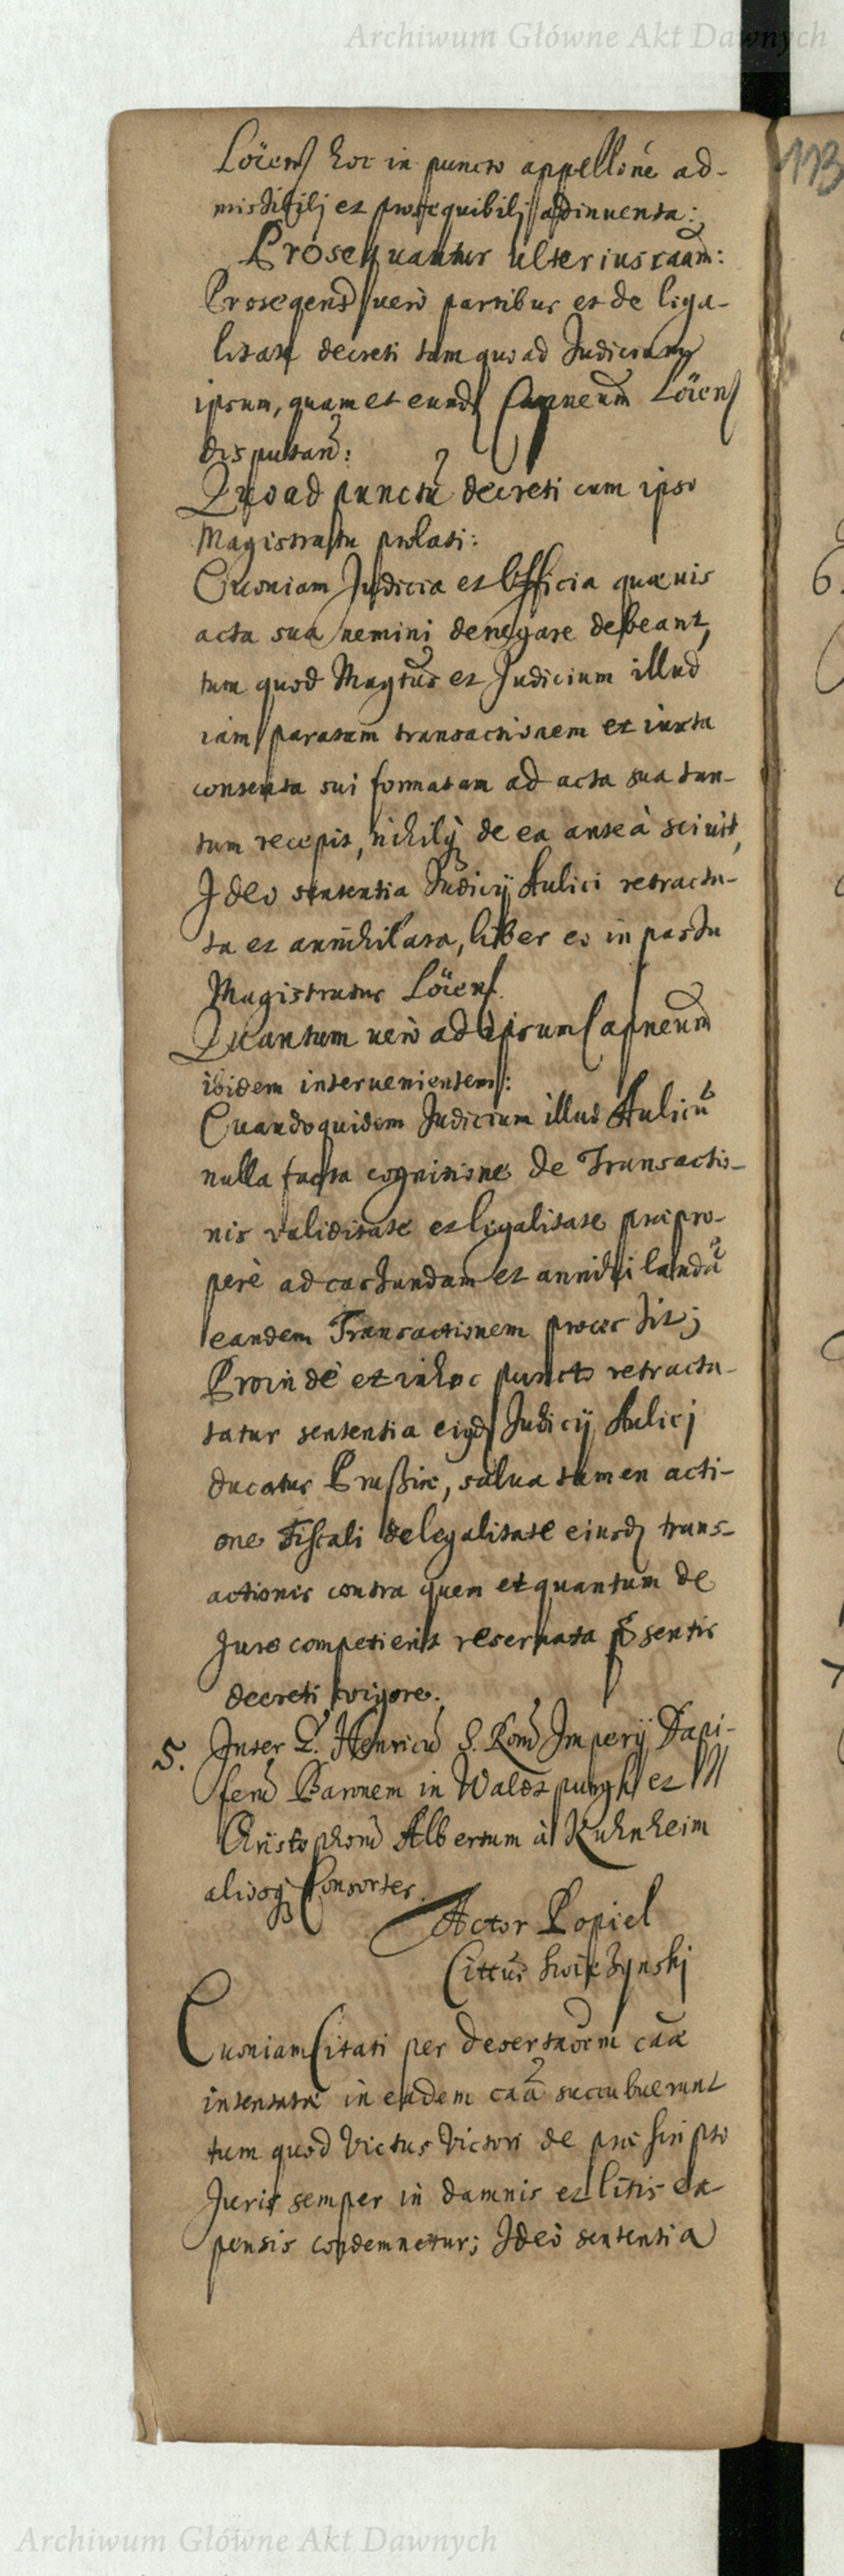 Archiwum Główne Akt Dawnych
Löens hoc in puncto appellōne ad-
missibilj et prosequibilj adinuenta:
Prosequantur ulterius caām:
113
Prosegend uerò partibus et de liga-
litate decreti tam quoad Judicium
ipsum, quam et eund Capneum Löens
disputan:
Quoad punctū decreti cum ipso
Magistratu prolati:
Quoniam Judicia et Officia quævis
acta sua nemini denegare debeant,
tum quod Magtus et Judicium illud
iam paratam transactionem et iuxta
consensa sui formatam ad acta sua tan-
tum recepit, nihilq de ea anteà sciuit,
Ideo sententia Judicij Aulici retracta-
ta et annihilata, liber eo in passu
Magistratus Löens.
Quantum uerò ad ipsum Capneum
ibidem interuenientem:
Quandoquidem Judicium illud Aulicū
nulla facta cognitione de Transactio-
nis validitate et ligalitate præpro-
perè ad cassandam et annihilandā
eandem Transactionem processit;
Proindè et in hoc puncto retracta-
tatur sententia eiqd Judicij Aulicj
ducatus Prussiæ, salua tamen acti-
one Fiscali de legalitate eiusd trans-
actionis contra quem et quantum de
Jure competierit reseruata pñsentis
decreti uigore.
5. Inter G. Henricū S. Rom Imperij Dapi-
ferū Baronem in Waldtpurgh et
Christophorū Albertum à Kuhnheim
aliosq Consortes.
Actor Popiel
Cittus Swiezynski
6.
Quoniam Citati per desertaōem caæ
intentatæ in eadem caā succubuerunt
tum quod Victus Victori de præscripto
Juris semper in damnis et litis ex
pensis condemnetur; Ideò sententia
Archiwum Główne Akt Dawnych